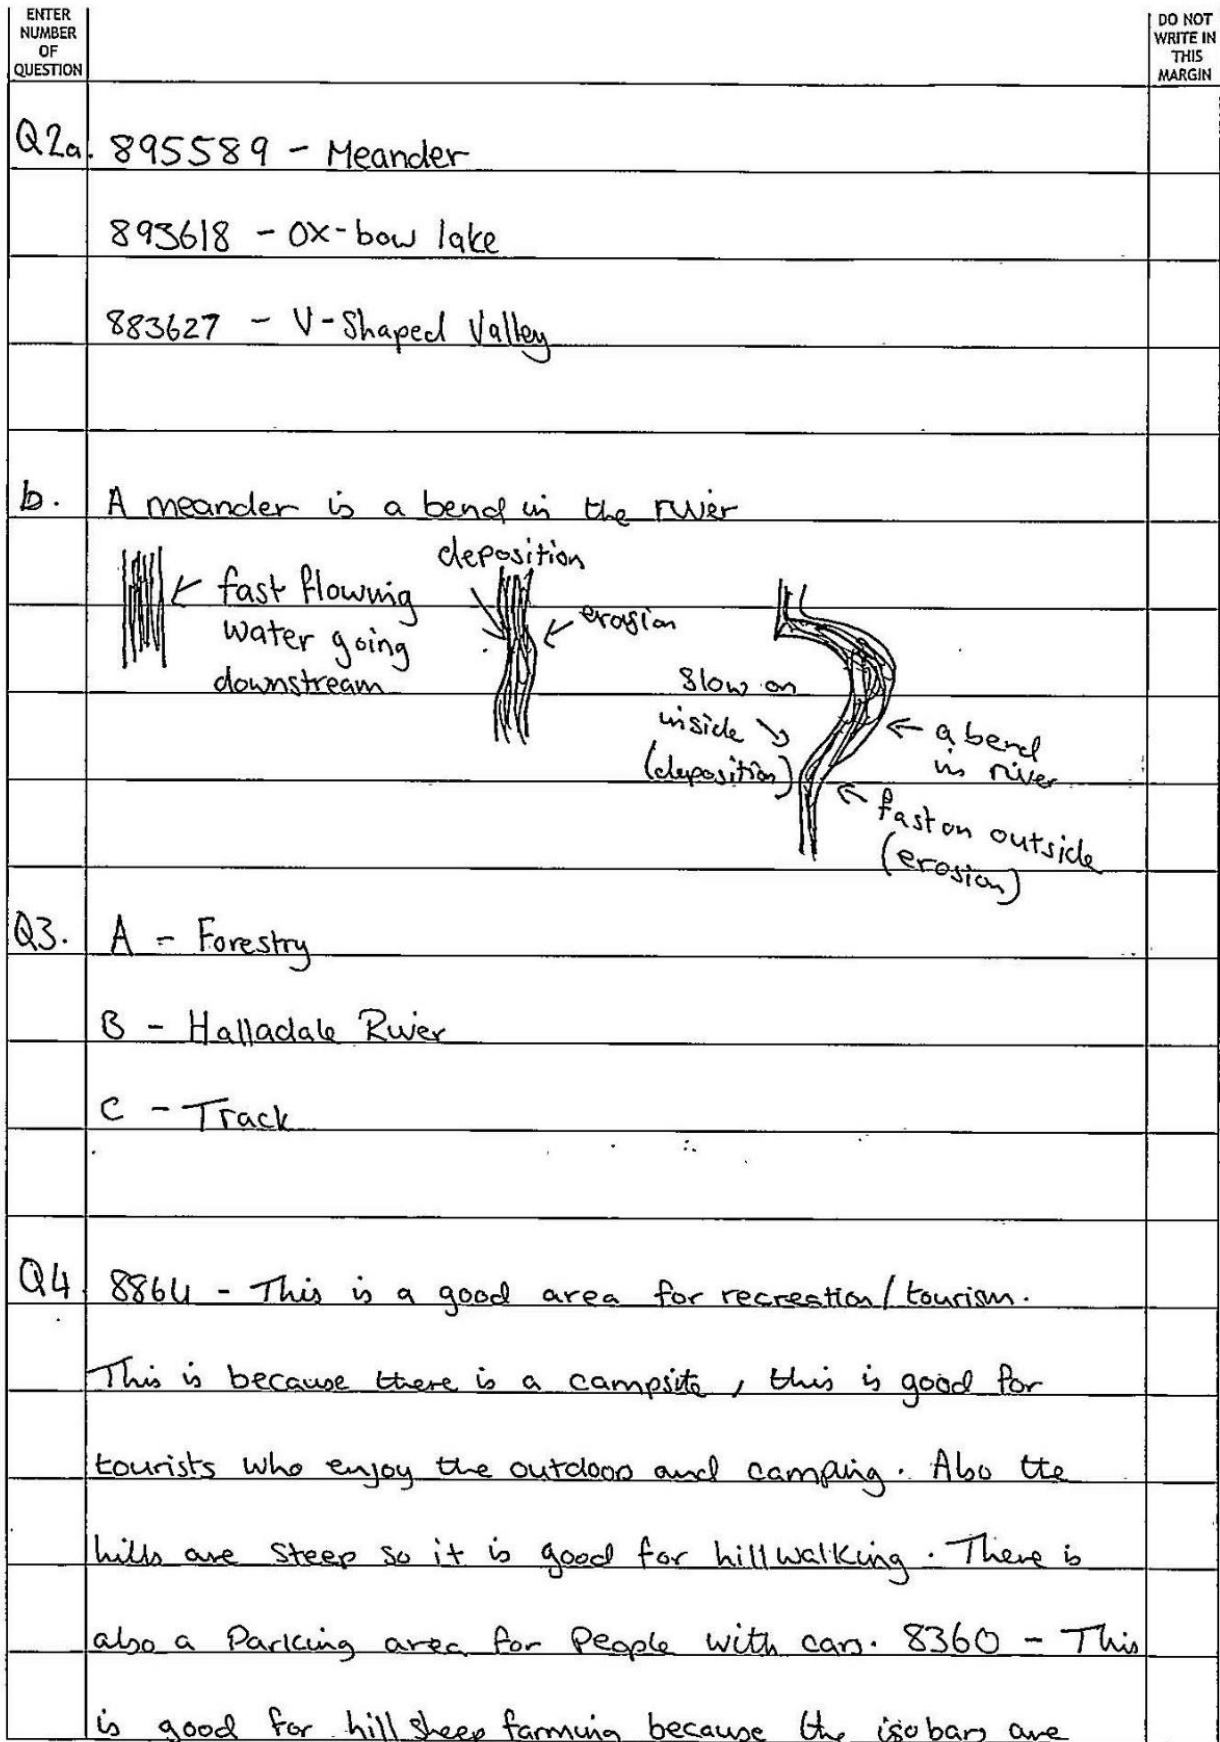 ENTER
NUMBER
OF
QUESTION
DO NOT
WRITE IN
THIS
MARGIN
Q2a. 895589 - Meander
893618 - Ox-bow lake
883627 - V-Shaped Valley
b. A meander is a bend in the river
fast flowing
water going
downstream
deposition
erosion
slow on
inside
(deposition)
a bend
in river
fast on outside
(erosion)
Q3. A - Forestry
B - Halladale River
C - Track
Q4 8864 - This is a good area for recreation/tourism.
This is because there is a campsite, this is good for
tourists who enjoy the outdoors and camping. Also the
hills are steep so it is good for hillwalking. There is
also a Parking area for People with cars. 8360 - This
is good for hill sheep farming because the isobars are